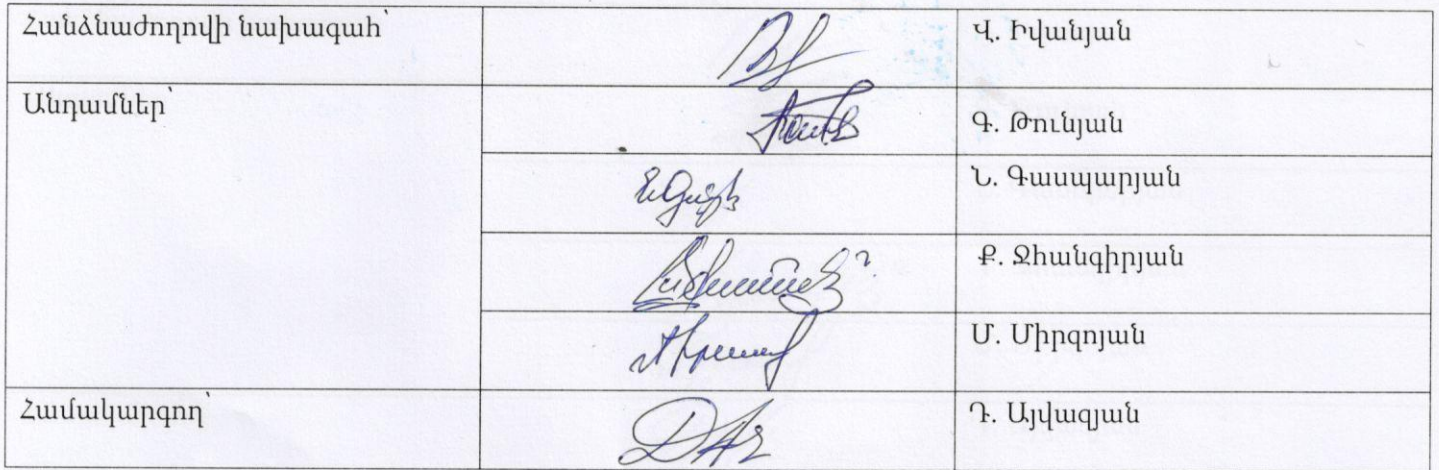 Հանձնաժողովի նախագահ՝
Վ. Իվանյան
Անդամներ՝
Գ. Թունյան
Ն. Գասպարյան
Ք. Ջհանգիրյան
Մ. Միրզոյան
Համակարգող՝
Դ. Այվազյան